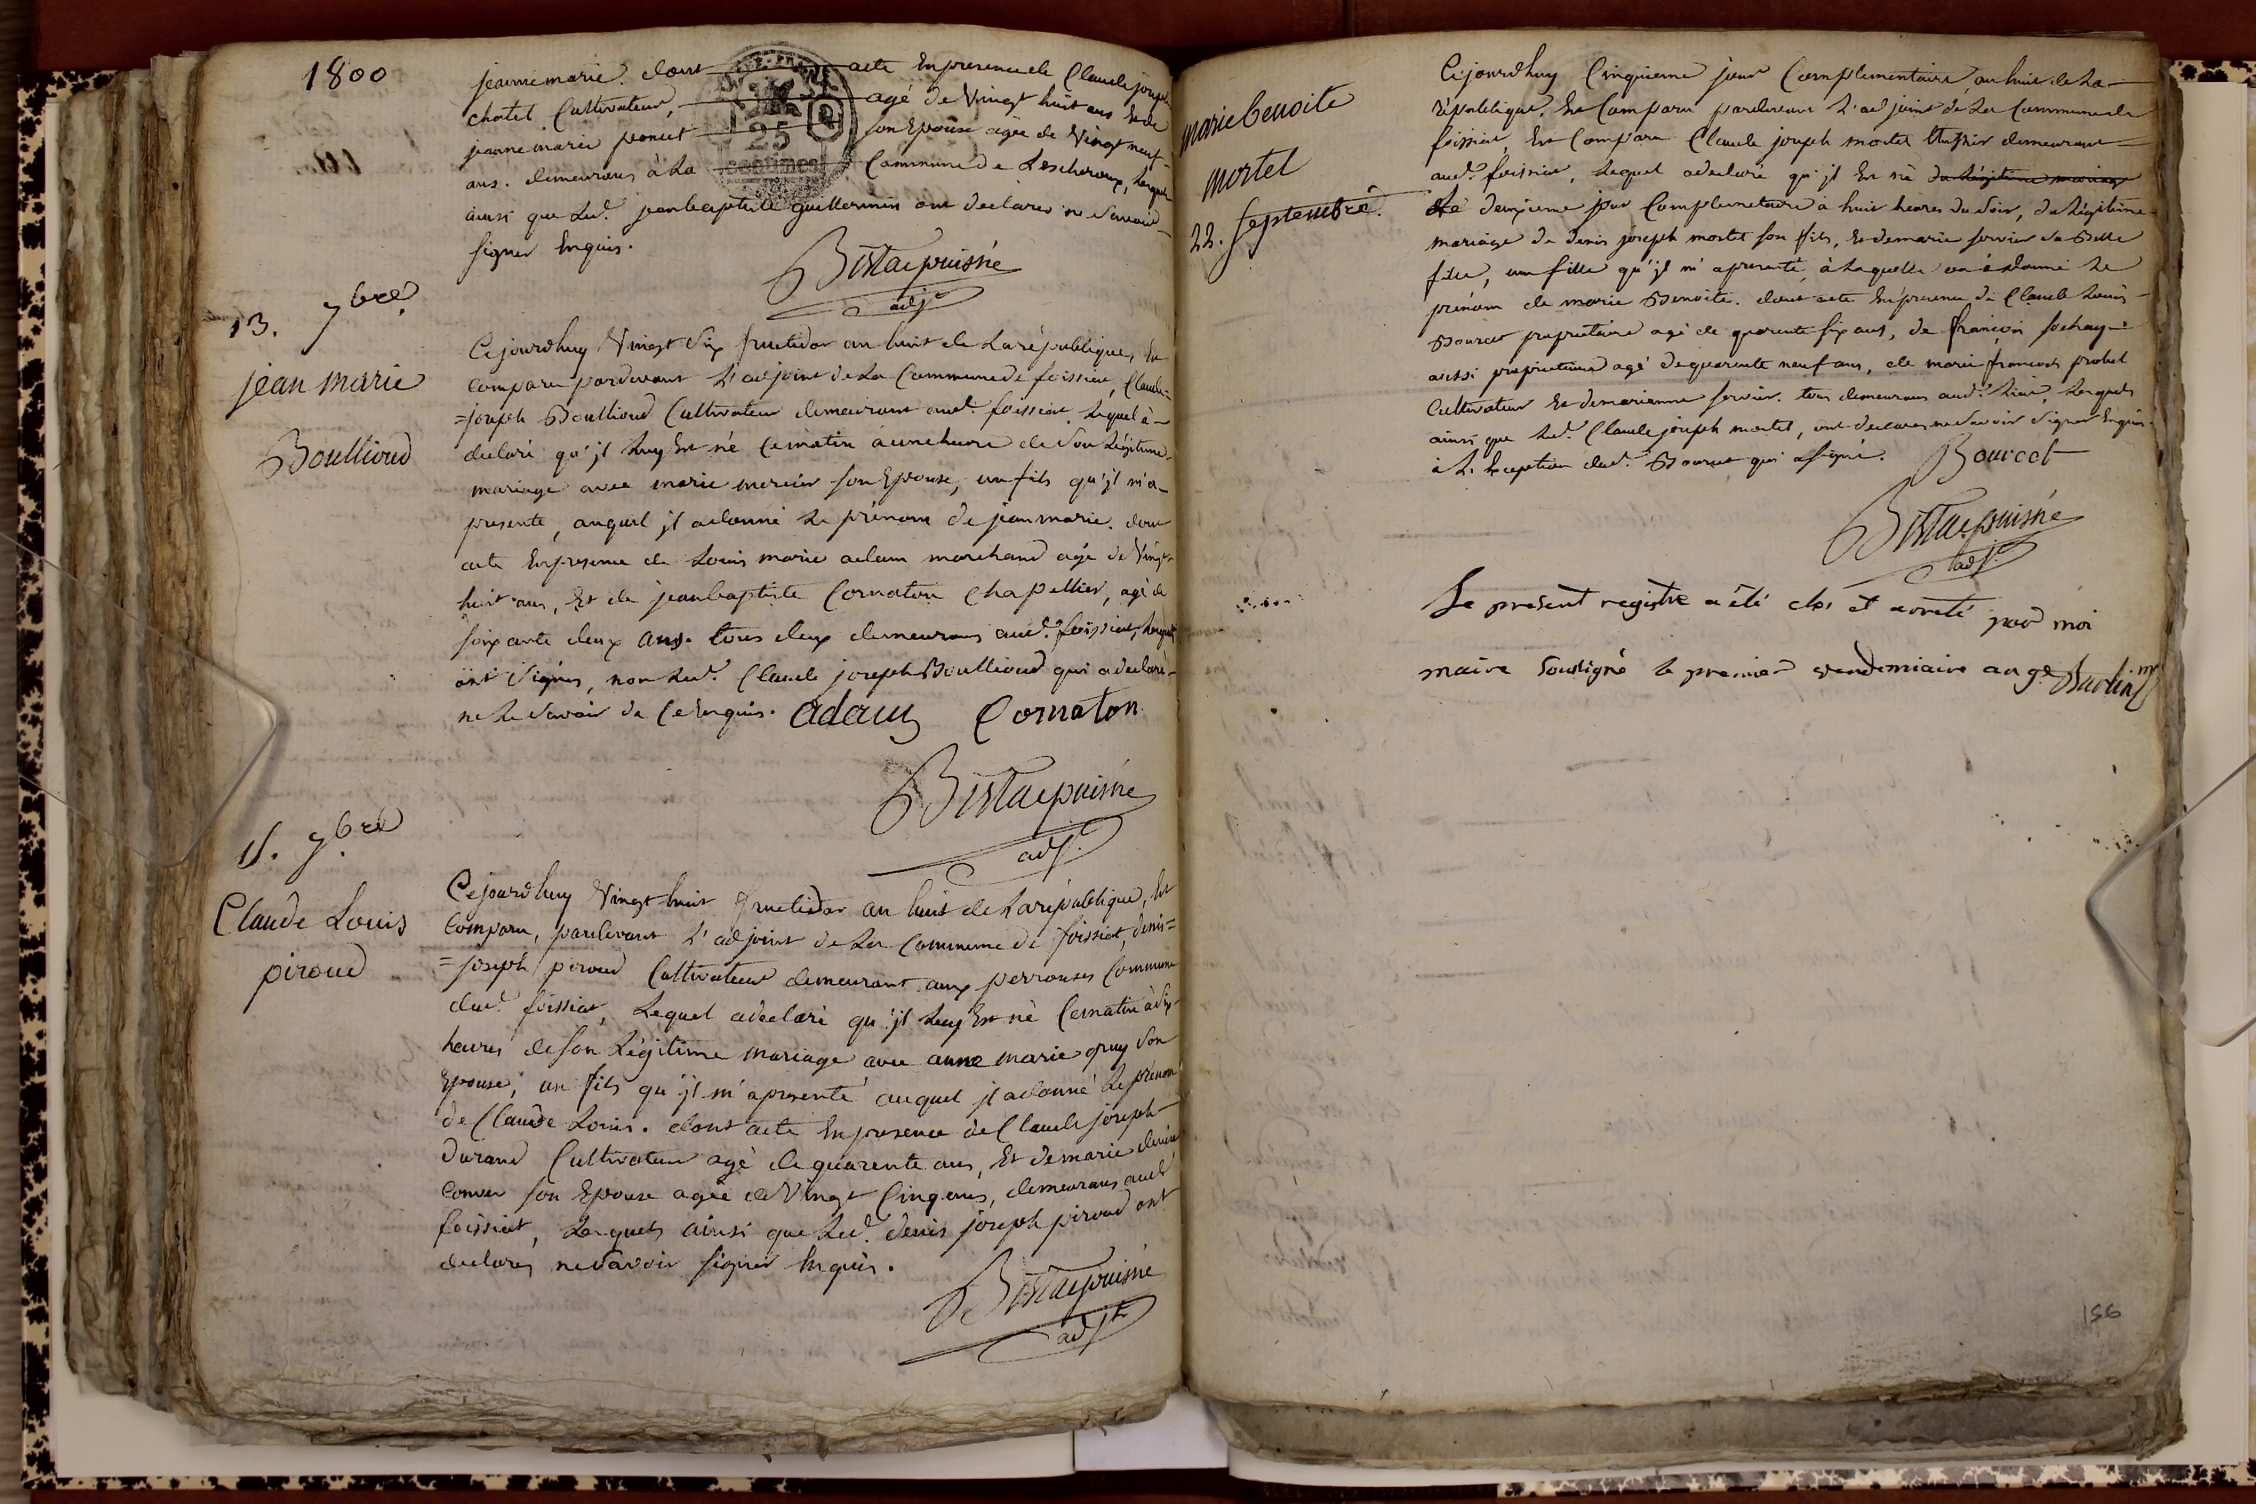 1800
jeanne marie. dont acte En presence de Claude joseph
chatel Cultivateur, agé de Vingt huit ans Et de
jeanne marie poncet son Epouse agée de Vingt neuf
ans. demeurans à La Commune de Lescheroux, Lesquels
ainsi que Led. jean baptiste guillermin ont declarés ne Savoir
signer Enquis.
25
centimes
Bistac puisné
adj.
13. 7bre
jean marie
Boullioud
Cejourdhuy Vingt Six fructidor an huit de La république, Est
comparu pardevant L'adjoint de La Commune de foissiat, Claude=
=joseph Boullioud Cultivateur demeurant aud. foissiat Lequel à
declaré qu'jl Luy Est né Ce matin à une heure de Son Légitime
mariage avec marie mercier son Epouse, un fils qu'jl m'a
presenté, auquel jl a donné Le prénom de jean marie. dont
acte En presence de Louis marie adam marchand agé de Vingt
huit ans, Et de jean baptiste Cornaton Chapellier, agé de
soixante deux ans. tous deux demeurans aud. foissiat, Lesquels
ont Signés, non Led. Claude joseph Boullioud qui a declaré
ne Le Savoir de Ce Enquis. adam Cornaton
Bistac puisné
adj.
15. 7bre
Claude Louis
piroud
Cejourdhuy Vingt huit fructidor an huit de La république, Est
Comparu, pardevant L'adjoint de La Commune de foissiat, denis=
=joseph piroud Cultivateur demeurant aux perrouses Commune
dud. foissiat, Lequel a declaré qu'jl Luy Est né Ce matin à Six
heures de son Légitime mariage avec anne marie gruy Son
Epouse, un fils qu'jl m'a presenté auquel jl a donné Le prénom
de Claude Louis. dont acte En presence de Claude joseph
Durand Cultivateur agé de quarente ans, Et de marie
son Epouse agée de Vingt Cinq ans, demeurans aud.
foissiat, Lesquels ainsi que Led. denis joseph piroud ont
declarés ne Savoir signer Enquis.
Bistac puisné
adjt
marie benoite
mortel
22. septembre.
Cejourdhuy Cinquieme jour Complementaire an huit de La
république. Est Comparu pardevant L'adjoint de La Commune de
foissiat, Est Comparu Claude joseph mortel demeurant
aud. foissiat, Lequel a declaré qu'jl Est né du Légitime mariage
Le deuxieme jour Complementaire à huit heures du Soir, du Légitime
mariage de denis joseph mortel son fils, Et de marie servier Sa Belle
fille, une fille qu'jl m'a presenté, à Laquelle on a donné Le
prénom de marie Benoite. dont acte En presence de Claude Louis
Bourcet proprietaire agé de quarente six ans, de françois sochay
aussi proprietaire agé de quarente neuf ans, de marie françois probel
Cultivateur Et de marianne servier. tous demeurans aud. Lieu, Lesquels
ainsi que Led. Claude joseph mortel, ont declarés ne Savoir Signer Enquis
à L'Exception dud. Bourcet qui a signé. Bourcet
Bistac puisné
adj.
Le present registre a été clos et arreté par moi
maire soussigné le premier vendemiaire an 9e
156